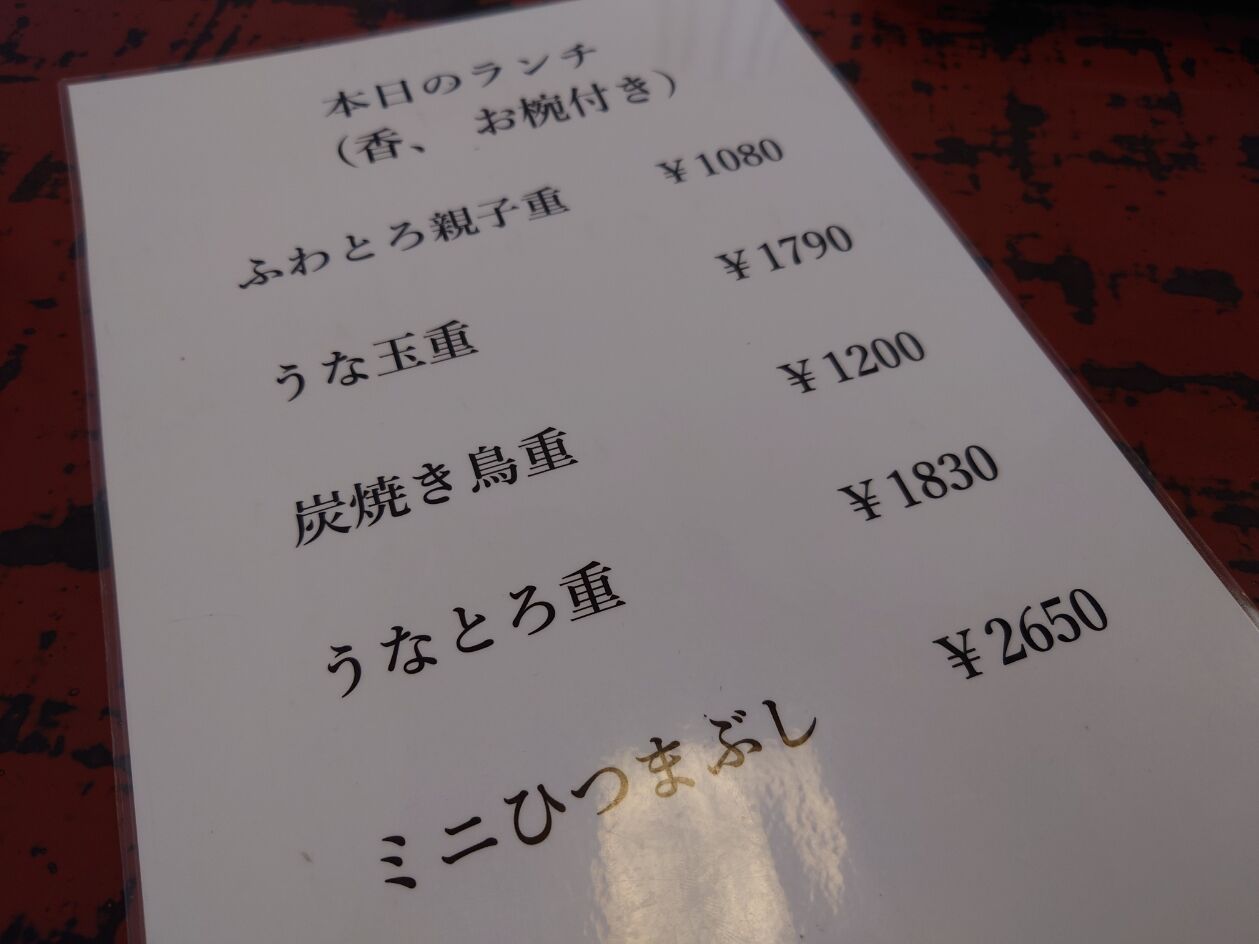 本日のランチ
(香、 お椀付き)
ふわとろ親子重 ¥1080
うな玉重 ¥1790
炭焼き鳥重 ¥1200
うなとろ重 ¥1830
ミニひつまぶし ¥2650